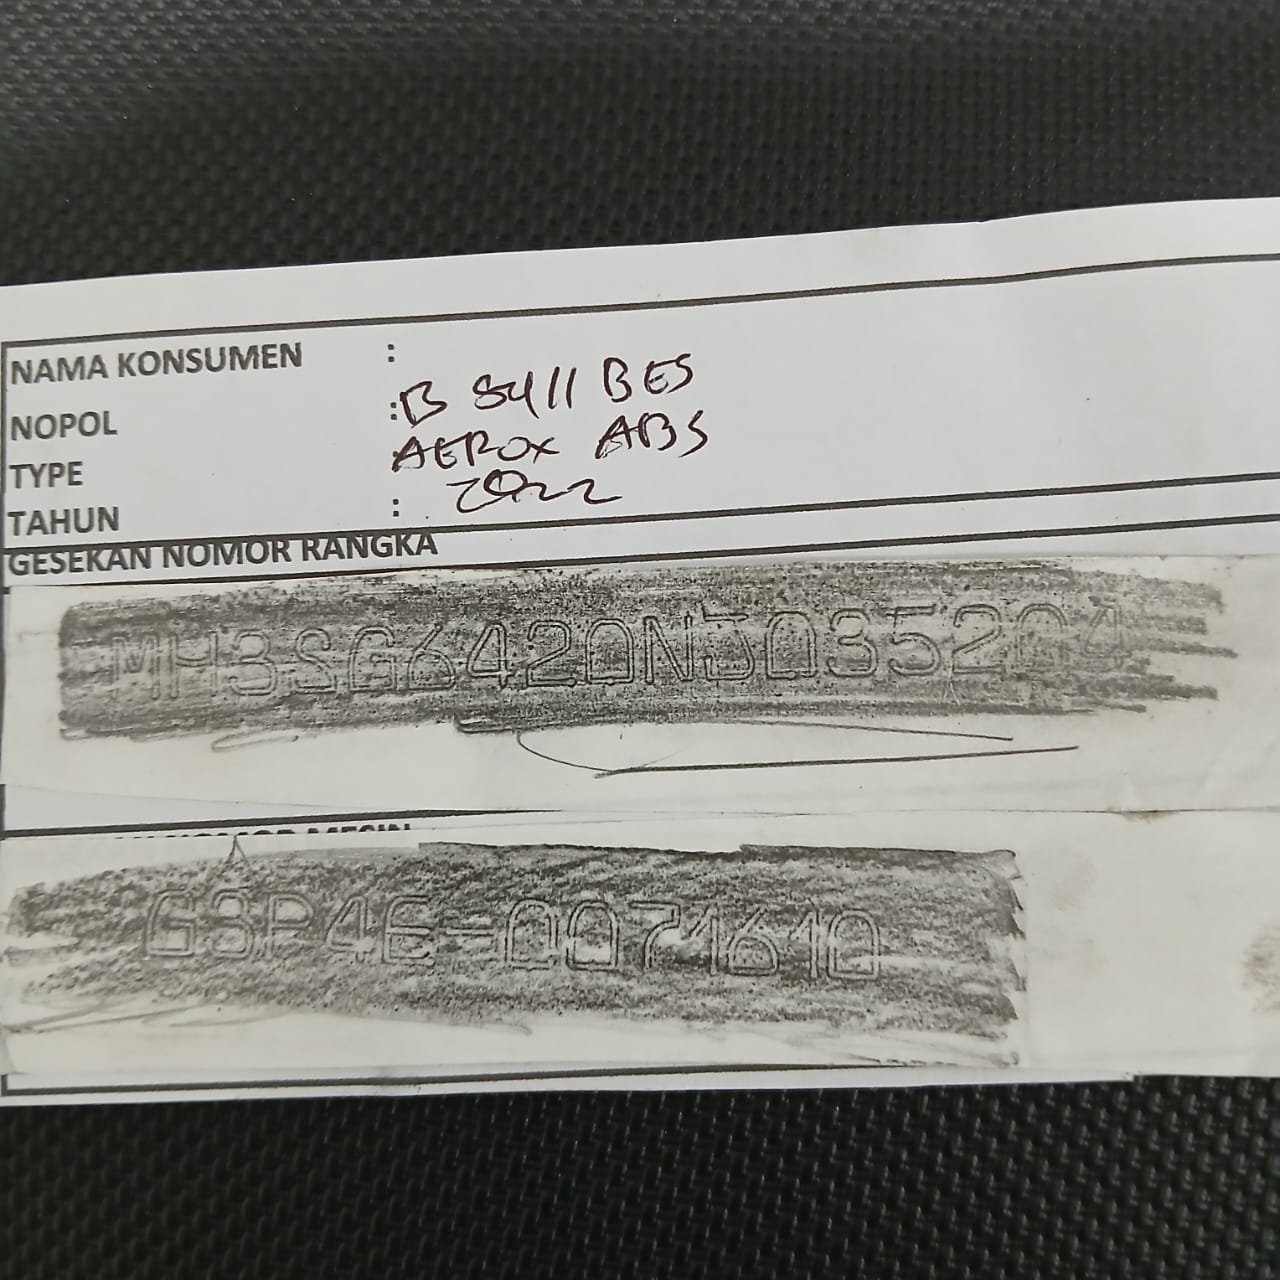 NAMA KONSUMEN :
NOPOL : B 5411 BES
TYPE AEROX ABS
TAHUN : 2022
GESEKAN NOMOR RANGKA
MH3SG6420NJ035204
NOMOR MESIN
G3P4E-0071610